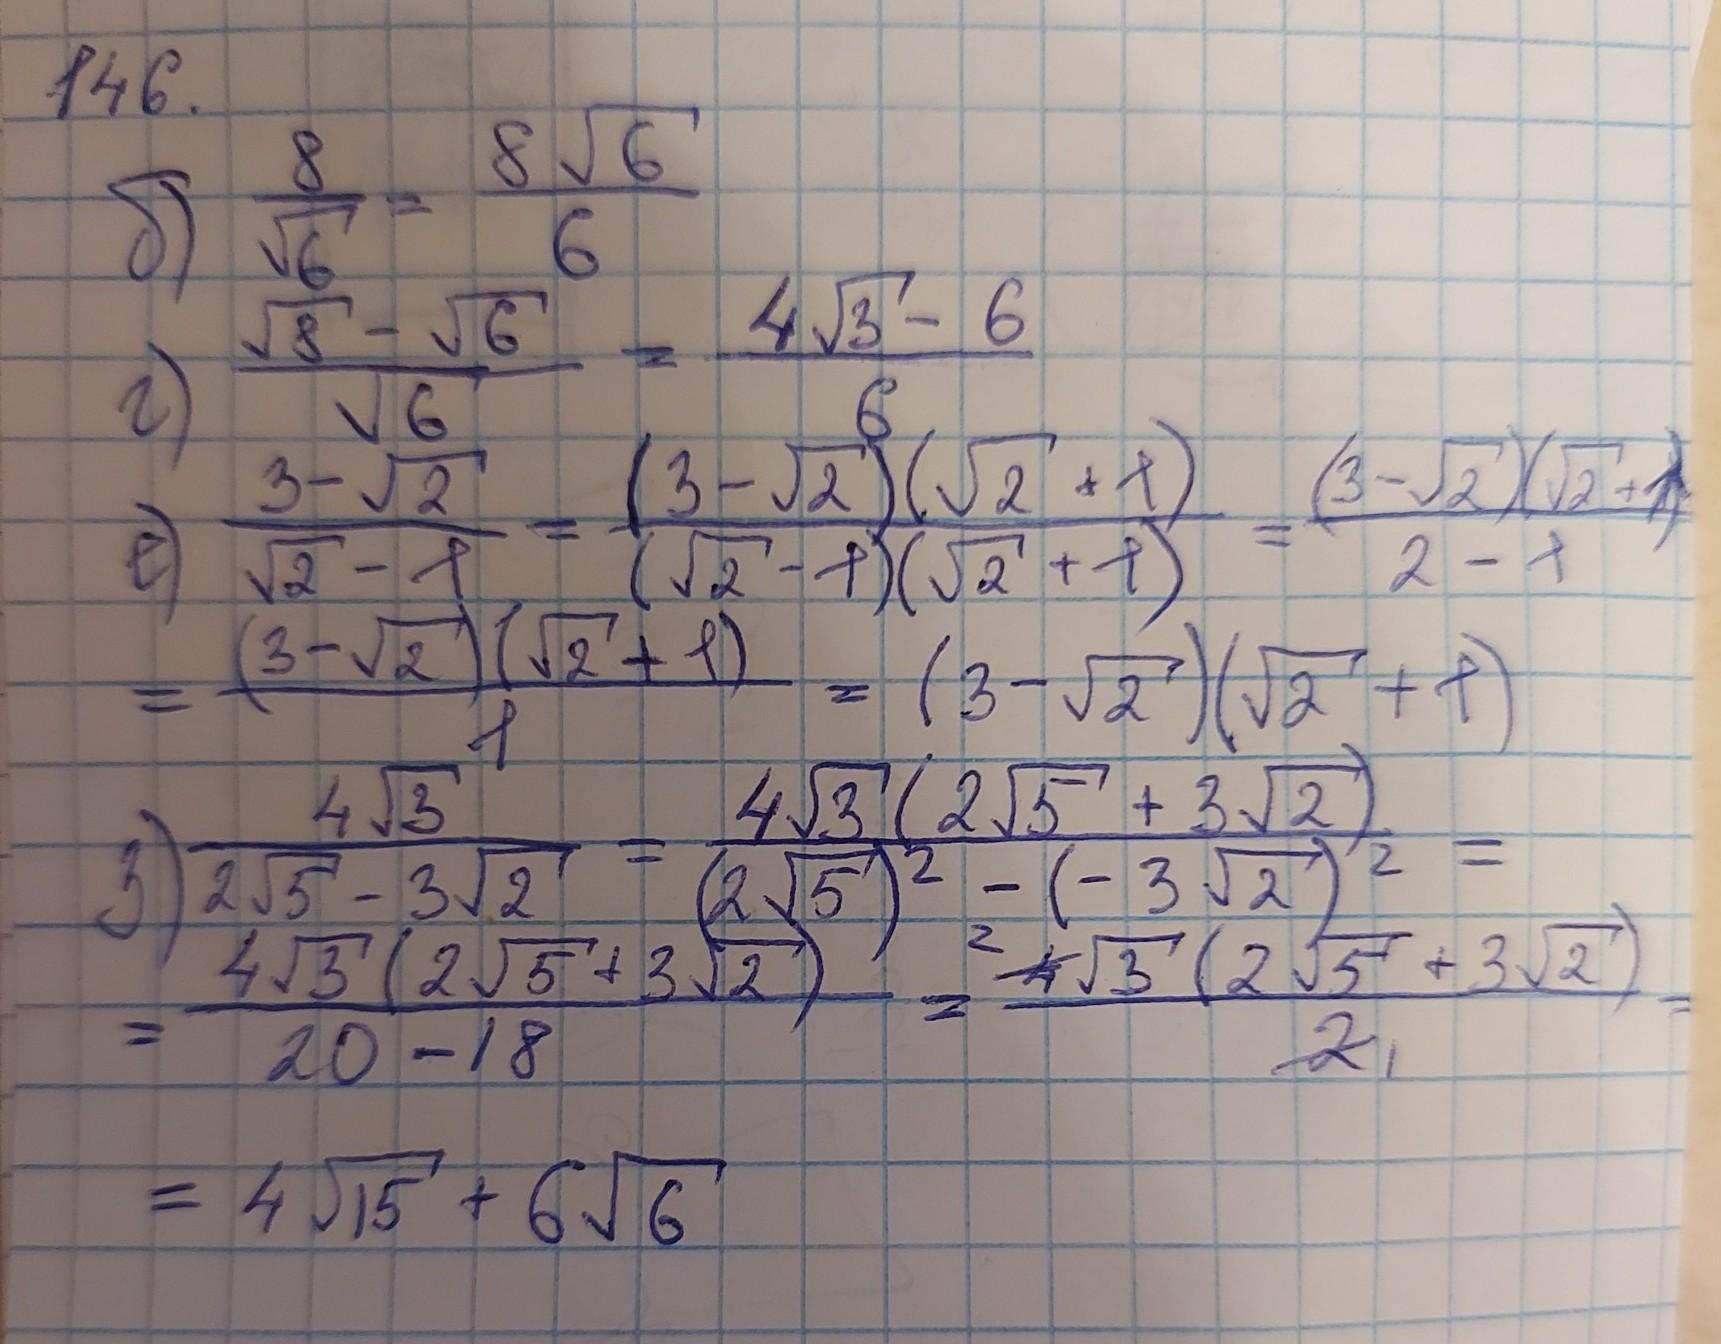 146.
б) 8/√6 = 8√6/6
г) (√8 - √6)/√6 = (4√3 - 6)/6
е) (3-√2)/(√2-1) = (3-√2)(√2+1)/(√2-1)(√2+1) = (3-√2)(√2+1)/(2-1)
= (3-√2)(√2+1)/1 = (3-√2)(√2+1)
з) 4√3/(2√5-3√2) = 4√3(2√5+3√2)/((2√5)² - (-3√2)²) =
= 4√3(2√5+3√2)/(20-18) = ² 4√3(2√5+3√2)/2₁ =
= 4√15 + 6√6